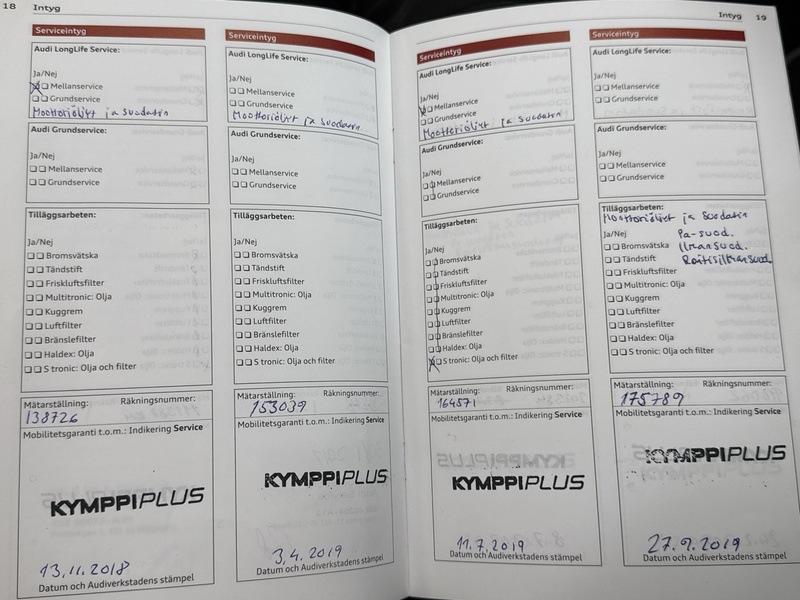 18 Intyg
Serviceintyg
Audi LongLife Service:
Ja/Nej
Mellanservice
Grundservice
Moottoriöljyt ja suodatin
Audi Grundservice:
Ja/Nej
Mellanservice
Grundservice
Tilläggsarbeten:
Ja/Nej
Bromsvätska
Tändstift
Friskluftsfilter
Multitronic: Olja
Kuggrem
Luftfilter
Bränslefilter
Haldex: Olja
S tronic: Olja och filter
Mätarställning: Räkningsnummer:
138726
Mobilitetsgaranti t.o.m.: Indikering Service
KYMPPIPLUS
13.11.2018
Datum och Audiverkstadens stämpel
Serviceintyg
Audi LongLife Service:
Ja/Nej
Mellanservice
Grundservice
Moottoriöljyt ja suodatin
Audi Grundservice:
Ja/Nej
Mellanservice
Grundservice
Tilläggsarbeten:
Ja/Nej
Bromsvätska
Tändstift
Friskluftsfilter
Multitronic: Olja
Kuggrem
Luftfilter
Bränslefilter
Haldex: Olja
S tronic: Olja och filter
Mätarställning: Räkningsnummer:
153039
Mobilitetsgaranti t.o.m.: Indikering Service
KYMPPIPLUS
3.4.2019
Datum och Audiverkstadens stämpel
Intyg 19
Serviceintyg
Audi LongLife Service:
Ja/Nej
Mellanservice
Grundservice
Moottoriöljyt ja suodatin
Audi Grundservice:
Ja/Nej
Mellanservice
Grundservice
Tilläggsarbeten:
Ja/Nej
Bromsvätska
Tändstift
Friskluftsfilter
Multitronic: Olja
Kuggrem
Luftfilter
Bränslefilter
Haldex: Olja
S tronic: Olja och filter
Mätarställning: Räkningsnummer:
164571
Mobilitetsgaranti t.o.m.: Indikering Service
KYMPPIPLUS
11.7.2019
Datum och Audiverkstadens stämpel
Serviceintyg
Audi LongLife Service:
Ja/Nej
Mellanservice
Grundservice
Audi Grundservice:
Ja/Nej
Mellanservice
Grundservice
Tilläggsarbeten:
Moottoriöljyt ja suodatin
Ja/Nej Pa-suod.
Bromsvätska Ilmansuod.
Tändstift Raitisilmansuod.
Friskluftsfilter
Multitronic: Olja
Kuggrem
Luftfilter
Bränslefilter
Haldex: Olja
S tronic: Olja och filter
Mätarställning: Räkningsnummer:
175789
Mobilitetsgaranti t.o.m.: Indikering Service
KYMPPIPLUS
27.9.2019
Datum och Audiverkstadens stämpel